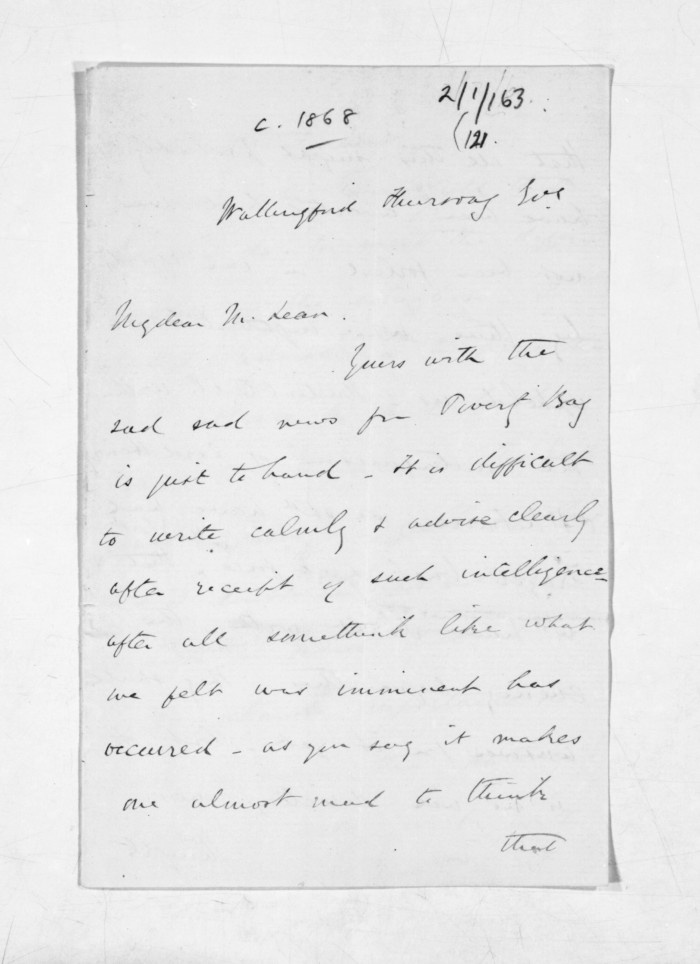 2/1/163
c. 1868
(121.
Wallingford Thursday Eve
My dear McLean.
Yours with the
sad sad news fm Poverty Bay
is just to hand - It is difficult
to write calmly & advise clearly
after receipt of such intelligence -
after all somethink like what
we felt was imminent has
occured - as you say it makes
one almost mad to think
that